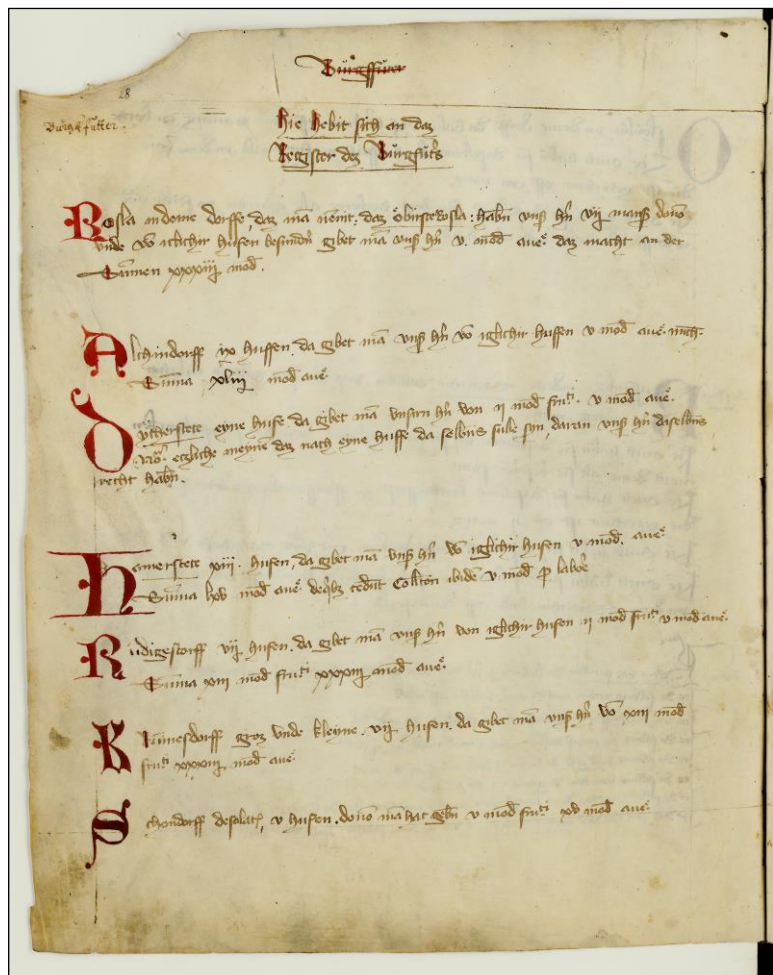 Burgfuter
28
Burgkfutter
Hie hebit sich an daz
Register dez Burgfut's
Rosla in deme dorffe, daz mā nēnit, daz obirste Rosla: habn̄ vnß hn̄ vij manß donō
vnde vō iclichir hufen besundn̄ gibet mā vnß hn̄ v. mod̄ aue᷑ daz macht an der
Sūmen xxxiiij mod̄.
Alchindorff ix huffen, da gibet mā vnß hn̄ vō iglichir huffen v mod̄ aue᷑.
Sūma xliij mod̄ aue᷑
eyne hufe da gibet mā vnsirn hn̄ von ii mod̄ fru. v mod̄ aue᷑.
etzliche meynē daz nach eyne huffe da selbins sulle syn, daran vnß hn̄ daselbins
recht habn̄.
Hamerstete xiii. hufen, da gibet mā vnß hn̄ vō iglichir hufen v mod̄. aue᷑
Sūma lxv mod̄ aue᷑ ibidē v mod̄ labor᷑
Rudigestorff vij hufen, da gibet mā vnß hn̄ von iglichir hufen ii mod̄ fru. v mod̄ aue᷑.
Sūma xiii mod̄ fru. xxxiij mod̄ aue᷑.
groz vnde kleyne. vij hufen. da gibet mā vnß hn̄ vō xiii mod̄
fru. xxxiij mod̄ aue᷑
Schondorff desolat, v hufen. donō mā hat gebn̄ v mod̄ fru. xv mod̄ aue᷑